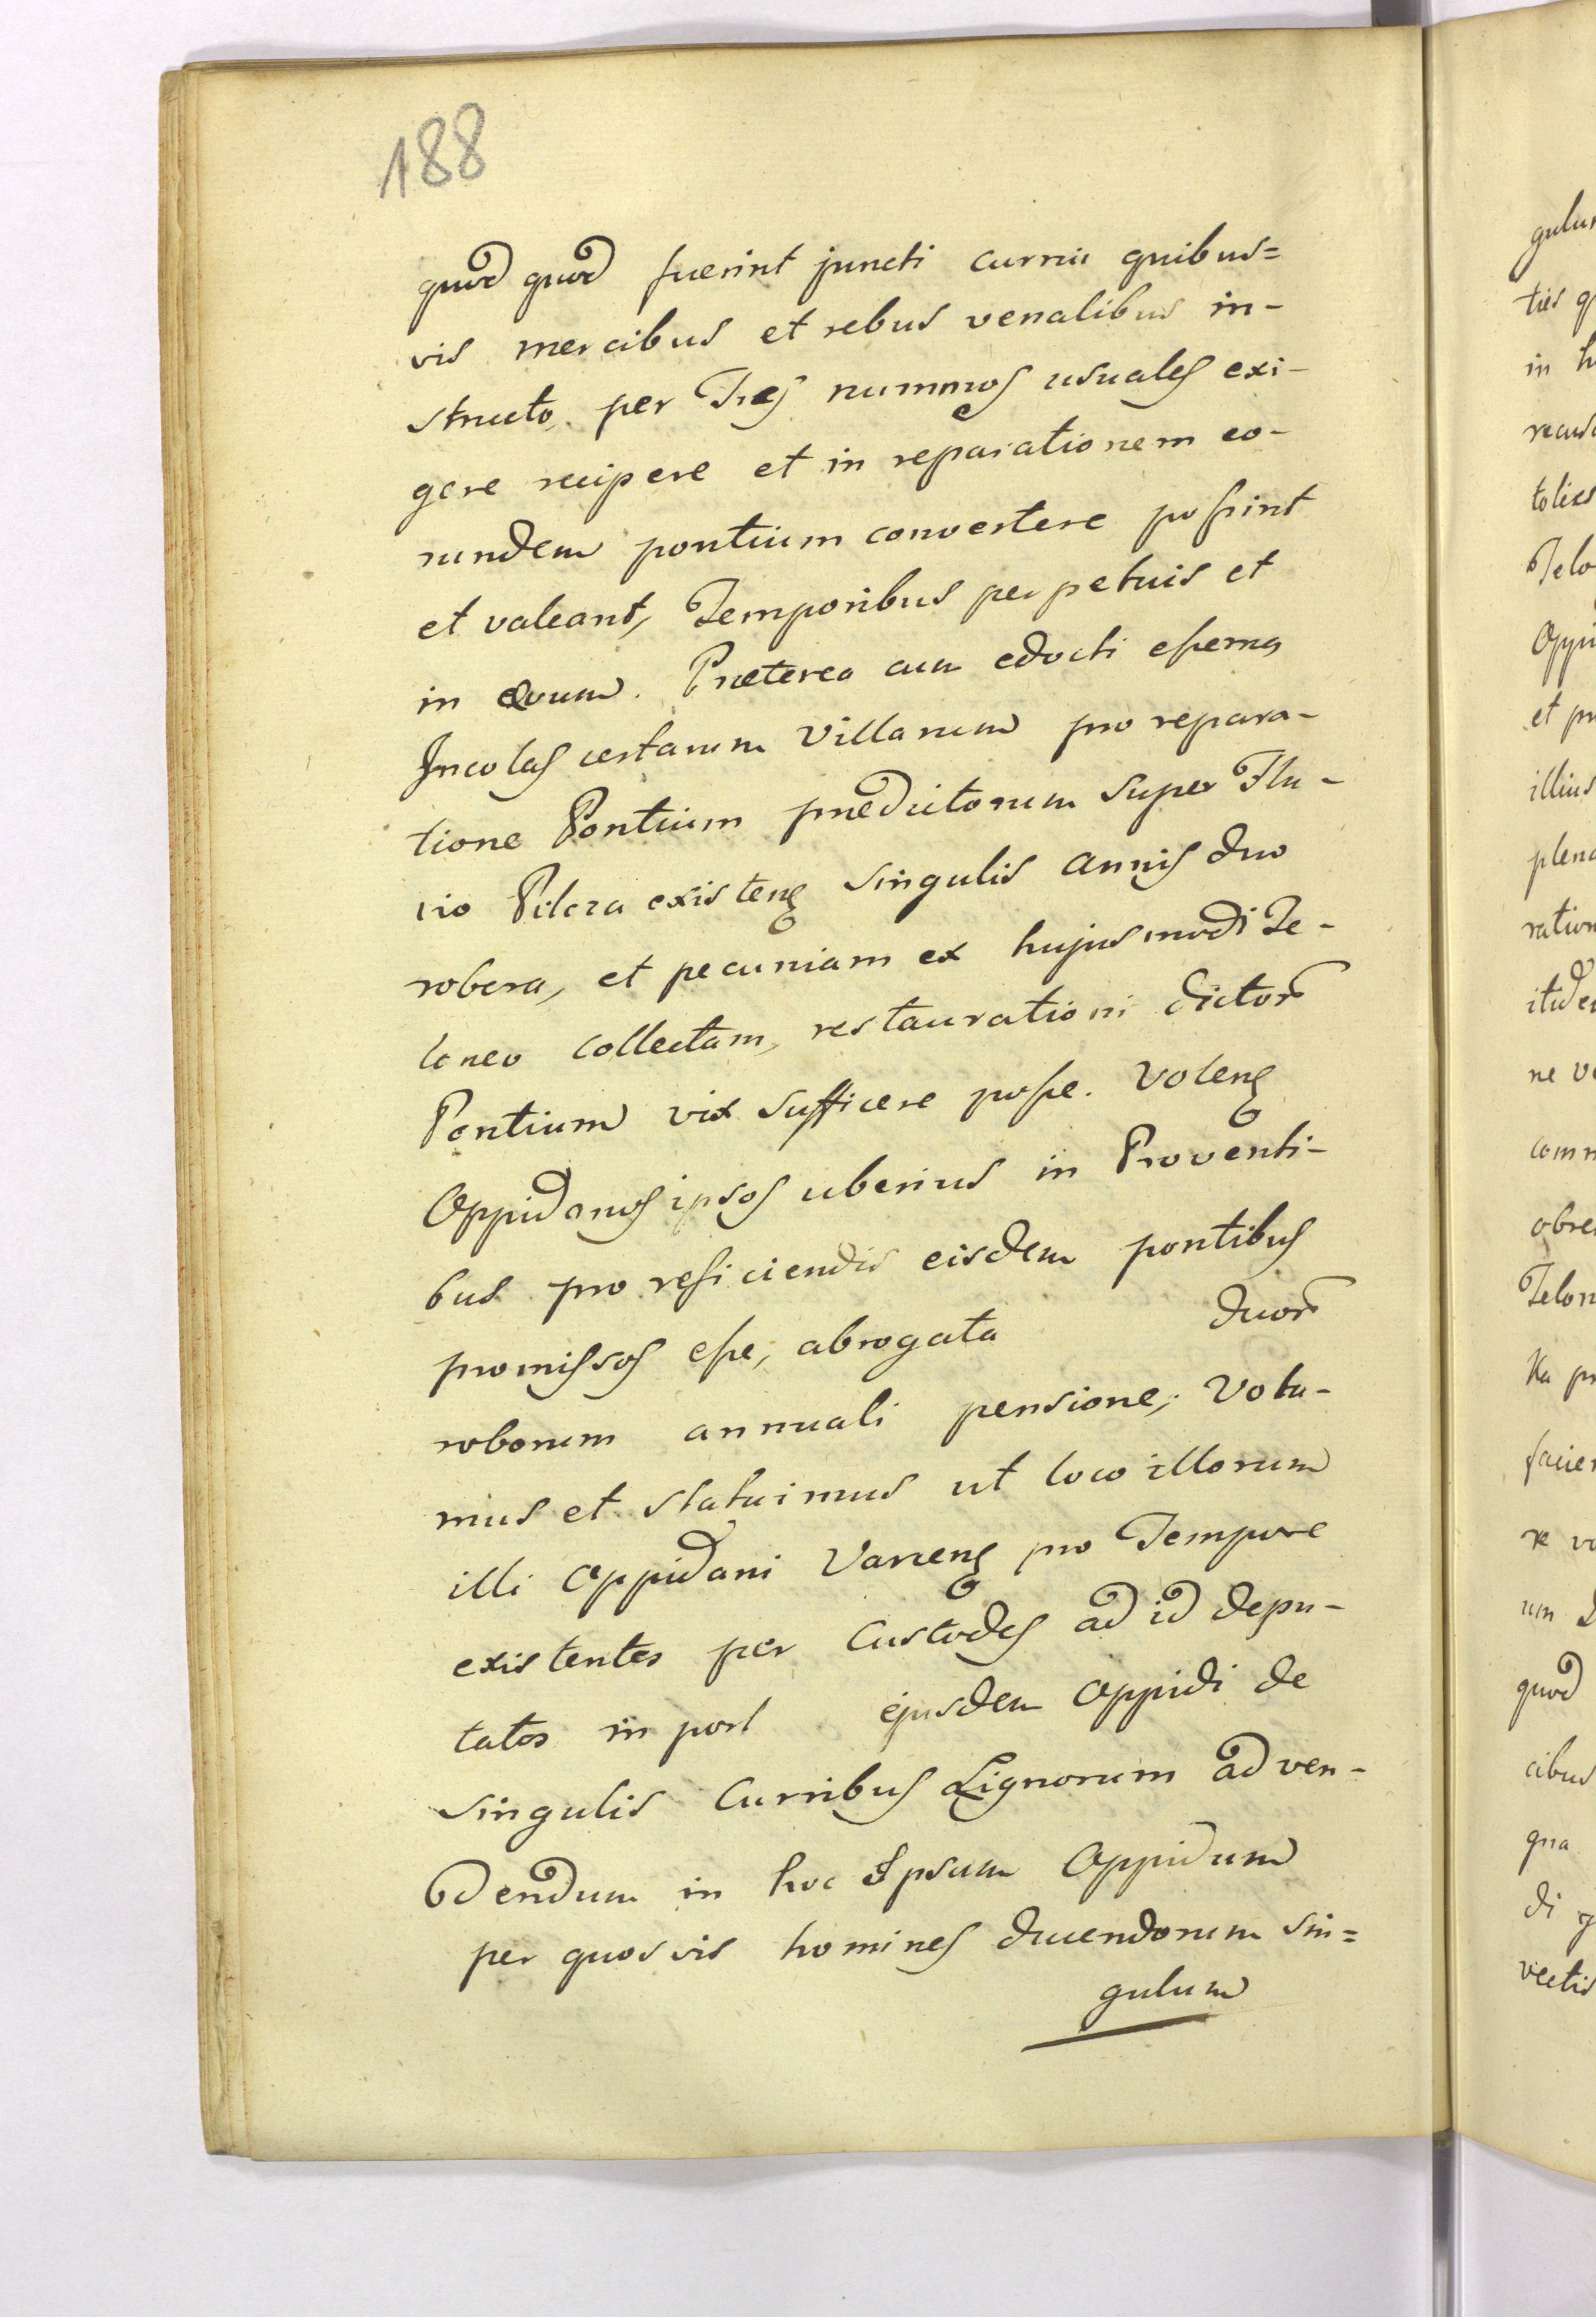 188
quod quod fuerint juncti currui quibus=
vis mercibus et rebus venalibus in-
structo, per Tres nummos usuales exi-
gere recipere et in reparationem eo-
rundem pontium convertere possint
et valeant, Temporibus perpetuis et
in ævum. Præterea cum edocti essemus
Incolas certarum Villarum pro repara-
tione Pontium prædictorum super Flu-
vio Pilcza existeng singulis annis duo
robora, et pecuniam ex hujusmodi Te-
loneo collectam, restaurationi dictor
Pontium vix sufficere posse. Voleng
Oppidanos ipsos uberius in Proventi-
bus pro reficiendis eisdem pontibus
promissos esse, abrogata duor
roborum annuali pensione, Volu-
mus et statuimus ut loco illorum
illi Oppidani Varieng pro Tempore
existentes per Custodes ad id depu-
tatos in port ejusdem Oppidi de
singulis Curribus Lignorum ad ven-
dendum in hoc Ipsum Oppidum
per quosvis homines ducendorum sin=
gulum
gulu
ties q
in h
recus
toties
Telo
Oppi
et pr
illius
plena
ration
itide
ne v
comm
obre
Telon
Ita pr
facie
re vo
um
quod
cibus
qua
di
vectis